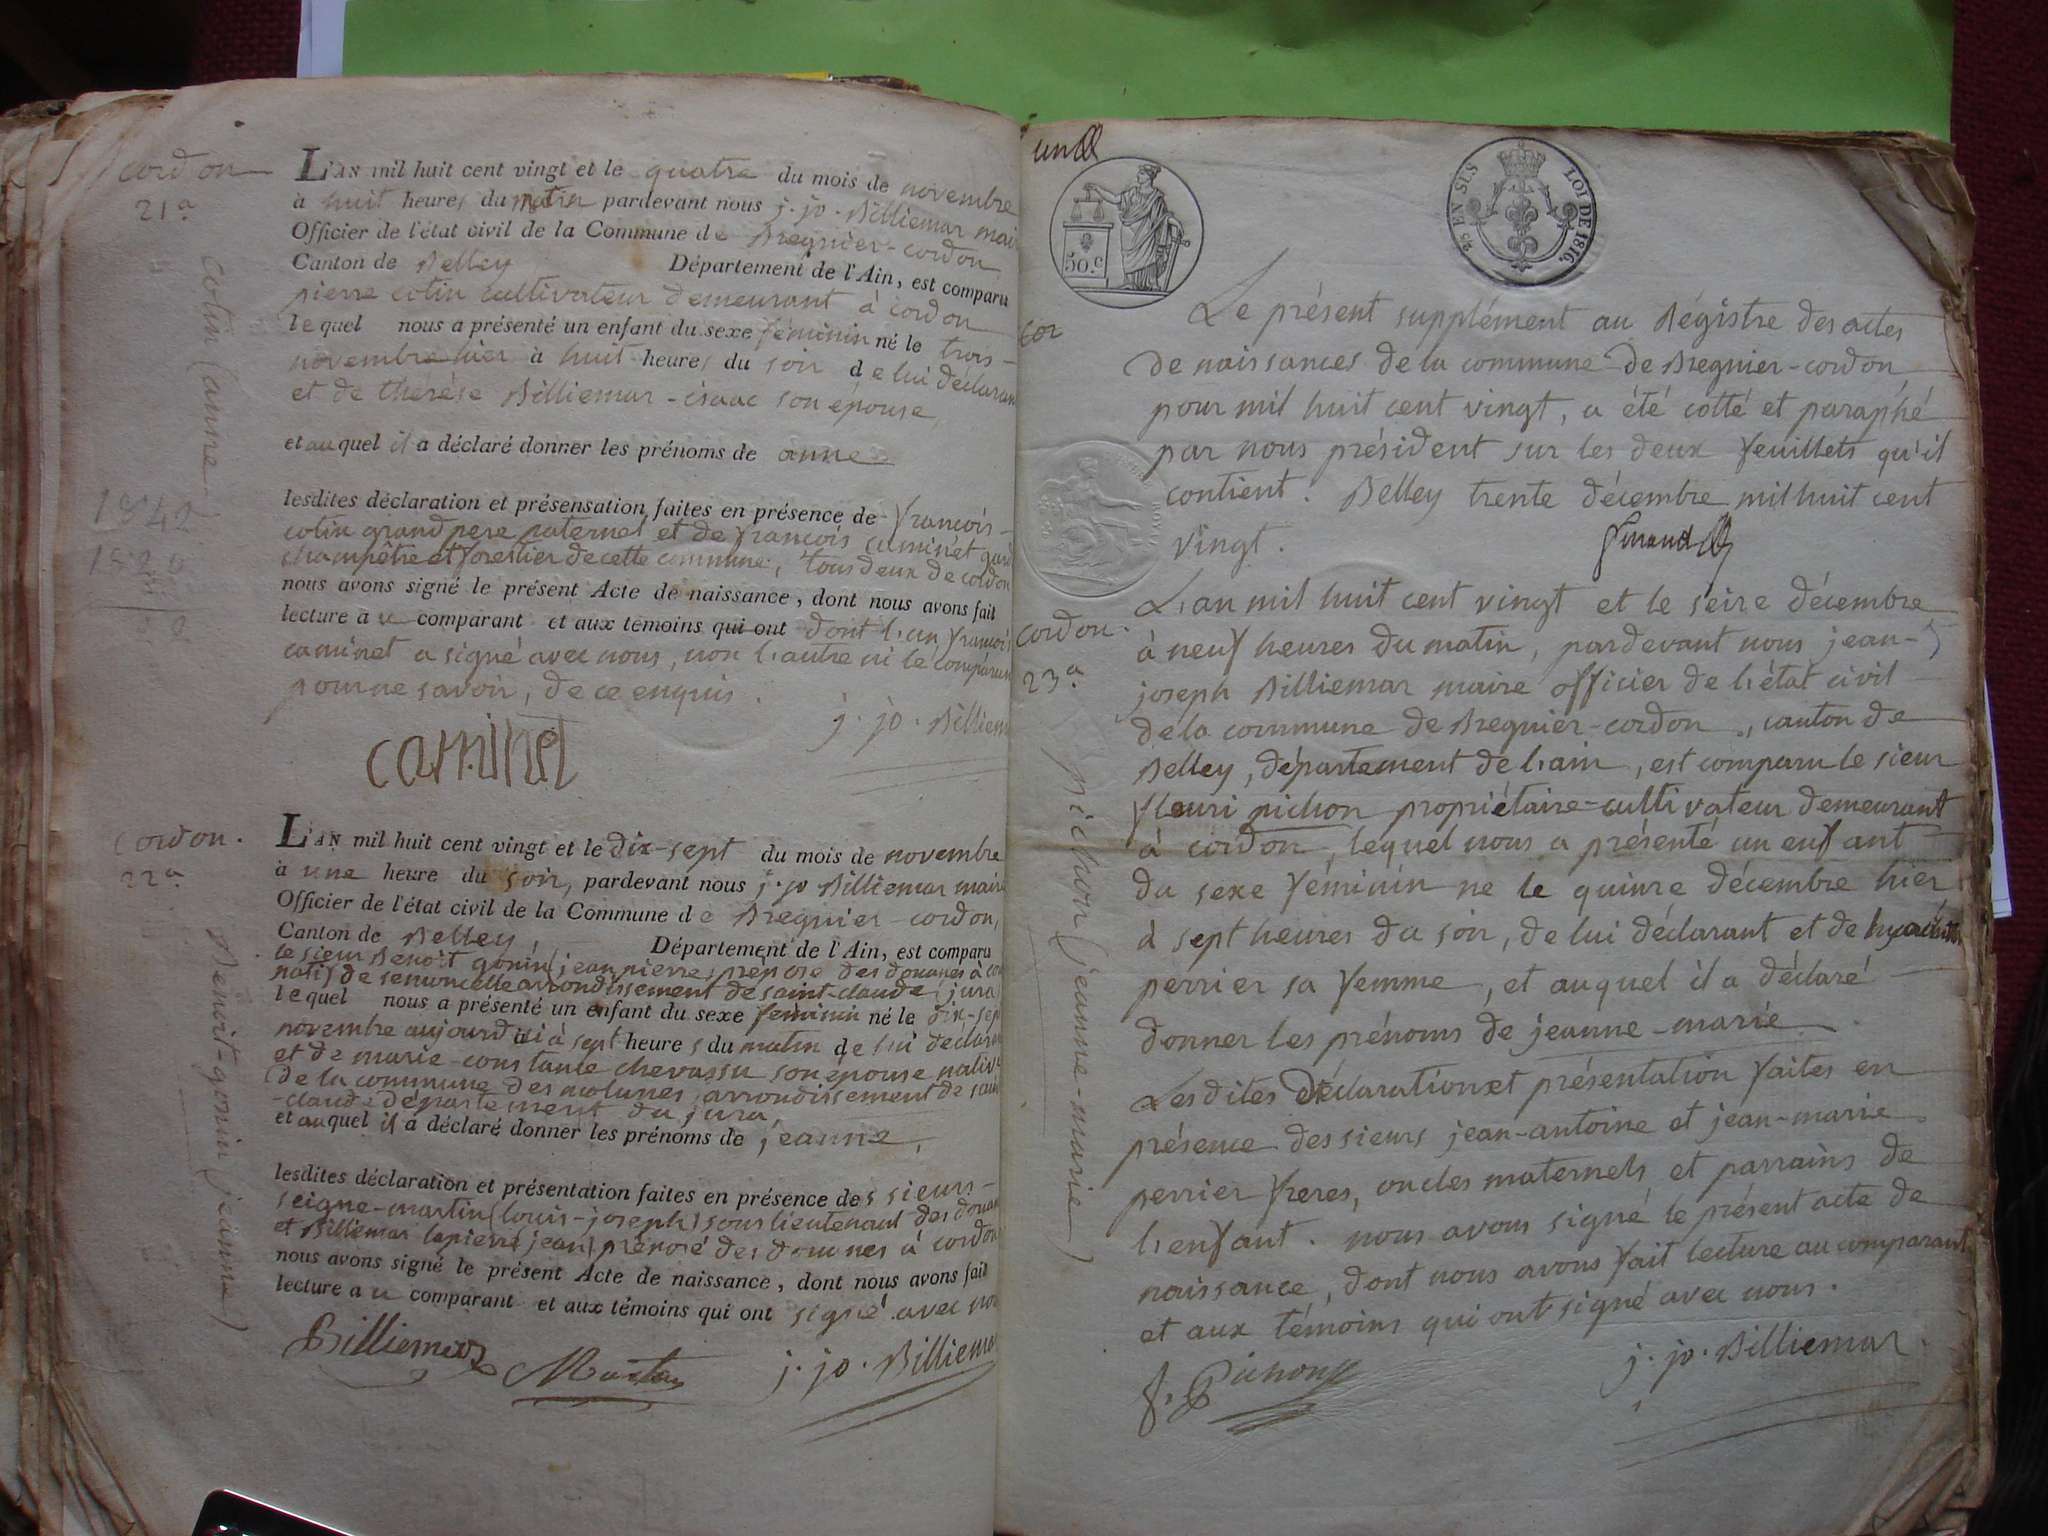 cordon
21e.
colin (anne)
1842
1820
L'AN mil huit cent vingt et le quatre du mois de novembre
à huit heures du matin pardevant nous j. jo. Billiemar mai
Officier de l'état civil de la Commune de Bregnier-cordon
Canton de Belley Département de l'Ain, est comparu
pierre colin cultivateur demeurant à cordon
lequel nous a présenté un enfant du sexe féminin né le trois
novembre hier à huit heures du soir de lui déclaran
et de thérèse Billiemar-isaac son épouse,
et auquel il a déclaré donner les prénoms de anne
lesdites déclaration et présensation faites en présence de françois
colin grand pere paternel et de françois caminet gard
champêtre et forestier de cette commune, tous deux de cordon
nous avons signé le présent Acte de naissance, dont nous avons fait
lecture au comparant et aux témoins qui ont dont l'un françois
caminet a signé avec nous, non l'autre ni le comparan
pour ne savoir, de ce enquis.
j. jo. Billiem
caminet
cordon.
22e.
Benoit-gonin (jeanne)
L'AN mil huit cent vingt et le dix-sept du mois de novembre
à une heure du soir, pardevant nous j. jo Billiemar maire
Officier de l'état civil de la Commune de Bregnier-cordon,
Canton de Belley Département de l'Ain, est comparu
le sieur Benoit gonin (jean pierre) préposé des douanes à cor
natif de arrondissement de saint-claude (jura)
lequel nous a présenté un enfant du sexe féminin né le dix-sep
novembre aujourdui à sept heures du matin de lui déclaran
et de marie-constance chevassu son épouse native
de la commune des molunes, arrondissement de sain
-claude département du jura,
et auquel il a déclaré donner les prénoms de jeanne,
lesdites déclaration et présentation faites en présence des sieurs
seigne-martin (louis-joseph) sous lieutenant des douan
et Billiemar lapierre (jean) préposé des douanes à cordon
nous avons signé le présent Acte de naissance, dont nous avons fait
lecture au comparant et aux témoins qui ont signé avec nou
Billiemar
Martin
j. jo. Billiemar
un
50.c
25 EN SUS
LOI DE 1816.
cor
Le présent supplément au Régistre des actes
de naissances de la commune de Bregnier-cordon
pour mil huit cent vingt, a été cotté et paraphé
par nous président sur les deux feuillets qu'il
contient. Belley trente décembre mil huit cent
vingt.
cordon.
23e.
pichon (jeanne-marie)
L'an mil huit cent vingt et le seize décembre
à neuf heures du matin, pardevant nous jean-
joseph Billiemar maire officier de l'état civil
de la commune de Bregnier-cordon, canton de
Belley, département de l'ain, est comparu le sieur
fleuri pichon propriétaire-cultivateur demeurant
à cordon, lequel nous a présenté un enfant
du sexe féminin né le quinze décembre hier
à sept heures du soir, de lui déclarant et de hyacinthe
perrier sa femme, et auquel il a déclaré
donner les prénoms de jeanne-marie.
Lesdites déclaration et présentation faites en
présence des sieurs jean-antoine et jean-marie
perrier freres, oncles maternels et parrains de
l'enfant. nous avons signé le présent acte de
naissance, dont nous avons fait lecture au comparant
et aux témoins qui ont signé avec nous.
f. Pichon
j. jo. Billiemar